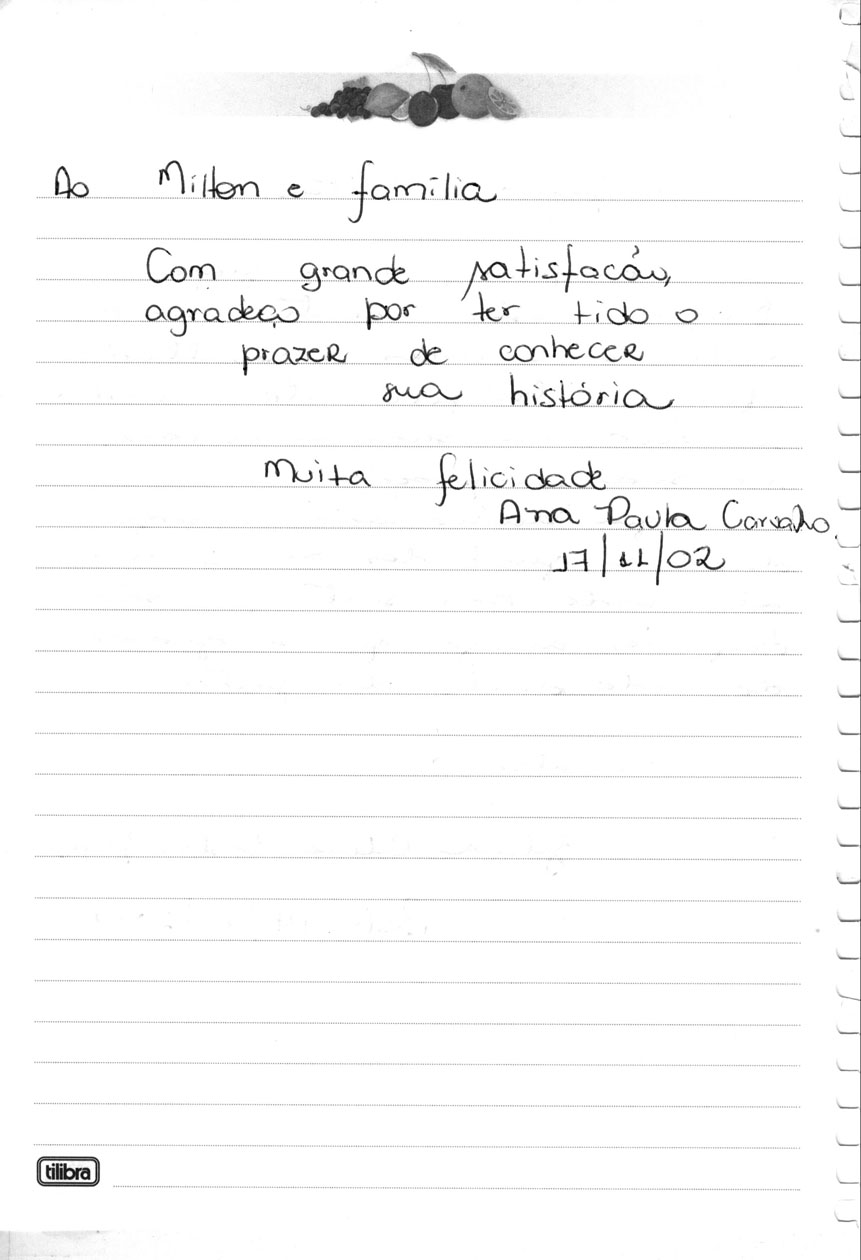 Ao Milton e família
Com grande satisfacão,
agradeço por ter tido o
prazer de conhecer
sua história
Muita felicidade
Ana Paula Carvalho.
17/11/02
tilibra